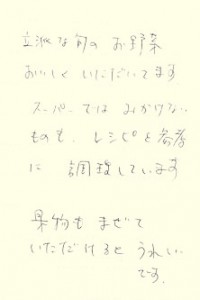 立派な旬の お野菜
おいしく いただいてます
スーパーでは みかけない
ものも、レシピを参考
に 調理しています
果物も まぜて
いただけると うれしい
です。